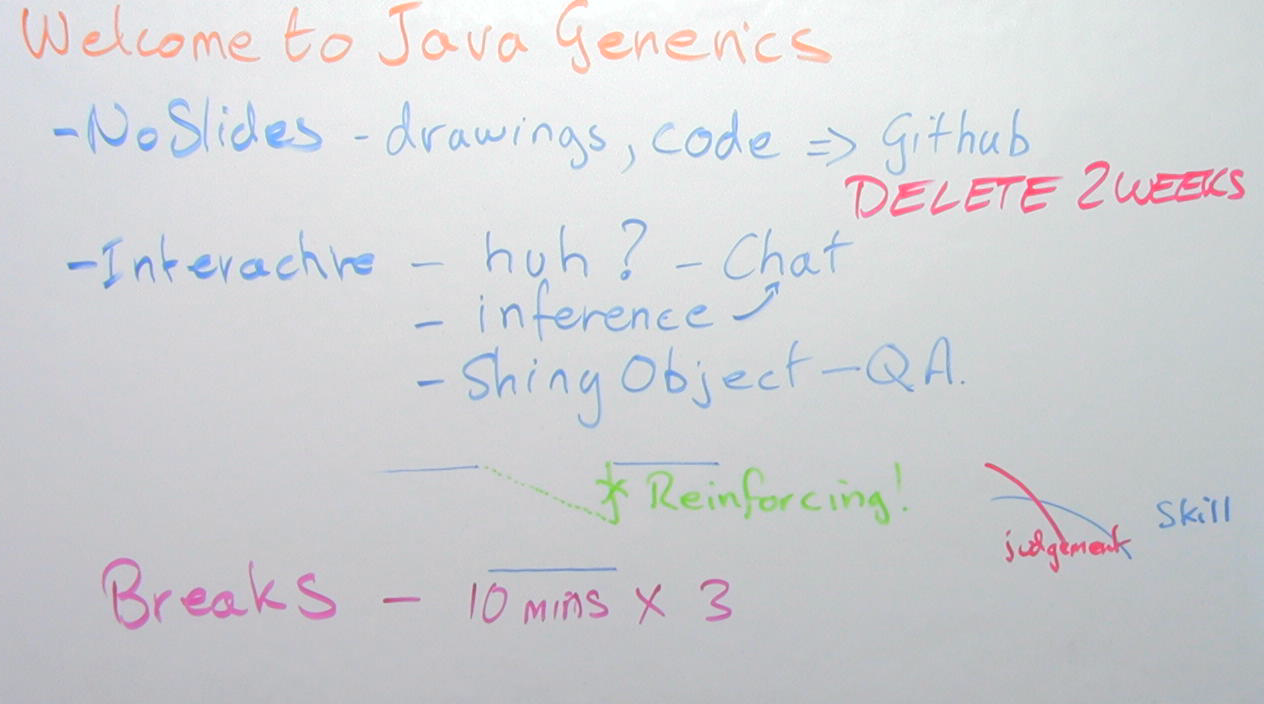 Welcome to Java Generics
- No Slides - drawings, code => Github
DELETE 2 WEEKS
- Interactive - huh? - Chat
- inference
- Shiny Object - QA.
* Reinforcing!
Skill
judgement
Breaks - 10 mins x 3